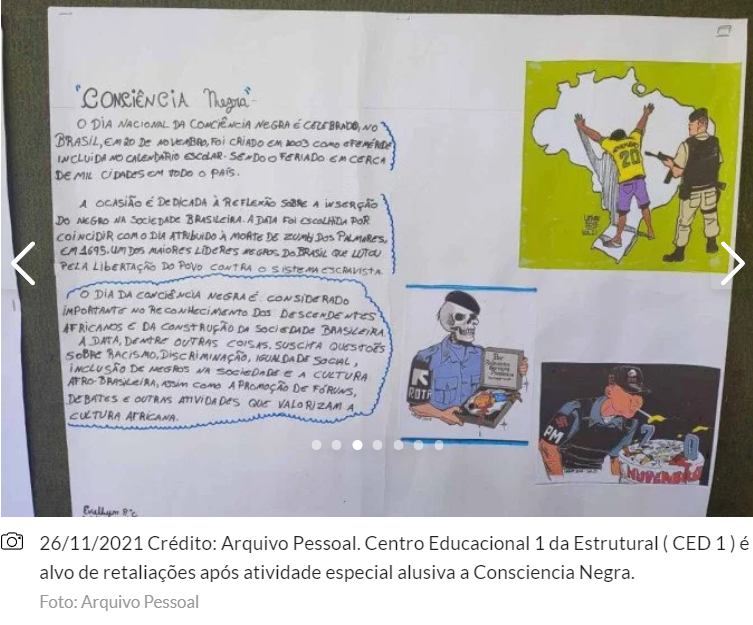 "CONCIÊNCIA Negra"
O DIA NACIONAL DA CONCIÊNCIA NEGRA É CELEBRADO, NO
BRASIL, EM 20 DE NOVEMBRO, FOI CRIADO EM 2003 COMO EFEMÉRIDE
INCLUIDA NO CALENDÁRIO ESCOLAR. SENDO FERIADO EM CERCA
DE MIL CIDADES EM TODO O PAÍS.
A OCASIÃO É DEDICADA À REFLEXÃO SOBRE A INSERÇÃO
DO NEGRO NA SOCIEDADE BRASILEIRA. A DATA FOI ESCOLHIDA POR
COINCIDIR COM O DIA ATRIBUÍDO À MORTE DE ZUMBI DOS PALMARES,
EM 1695, UM DOS MAIORES LÍDERES NEGROS DO BRASIL QUE LUTOU
PELA LIBERTAÇÃO DO POVO CONTRA O SISTEMA ESCRAVISTA.
O DIA DA CONCIÊNCIA NEGRA É CONSIDERADO
IMPORTANTE NO RECONHECIMENTO DOS DESCENDENTES
AFRICANOS E DA CONSTRUÇÃO DA SOCIEDADE BRASILEIRA.
A DATA, DENTRE OUTRAS COISAS, SUSCITA QUESTÕES
SOBRE RACISMO, DISCRIMINAÇÃO, IGUALDADE SOCIAL,
INCLUSÃO DE NEGROS NA SOCIEDADE E A CULTURA
AFRO-BRASILEIRA, ASSIM COMO A PROMOÇÃO DE FÓRUNS,
DEBATES E OUTRAS ATIVIDADES QUE VALORIZAM A
CULTURA AFRICANA.
20
ROTA
PM
20
NOVEMBRO
26/11/2021 Crédito: Arquivo Pessoal. Centro Educacional 1 da Estrutural ( CED 1 ) é
alvo de retaliações após atividade especial alusiva a Consciencia Negra.
Foto: Arquivo Pessoal